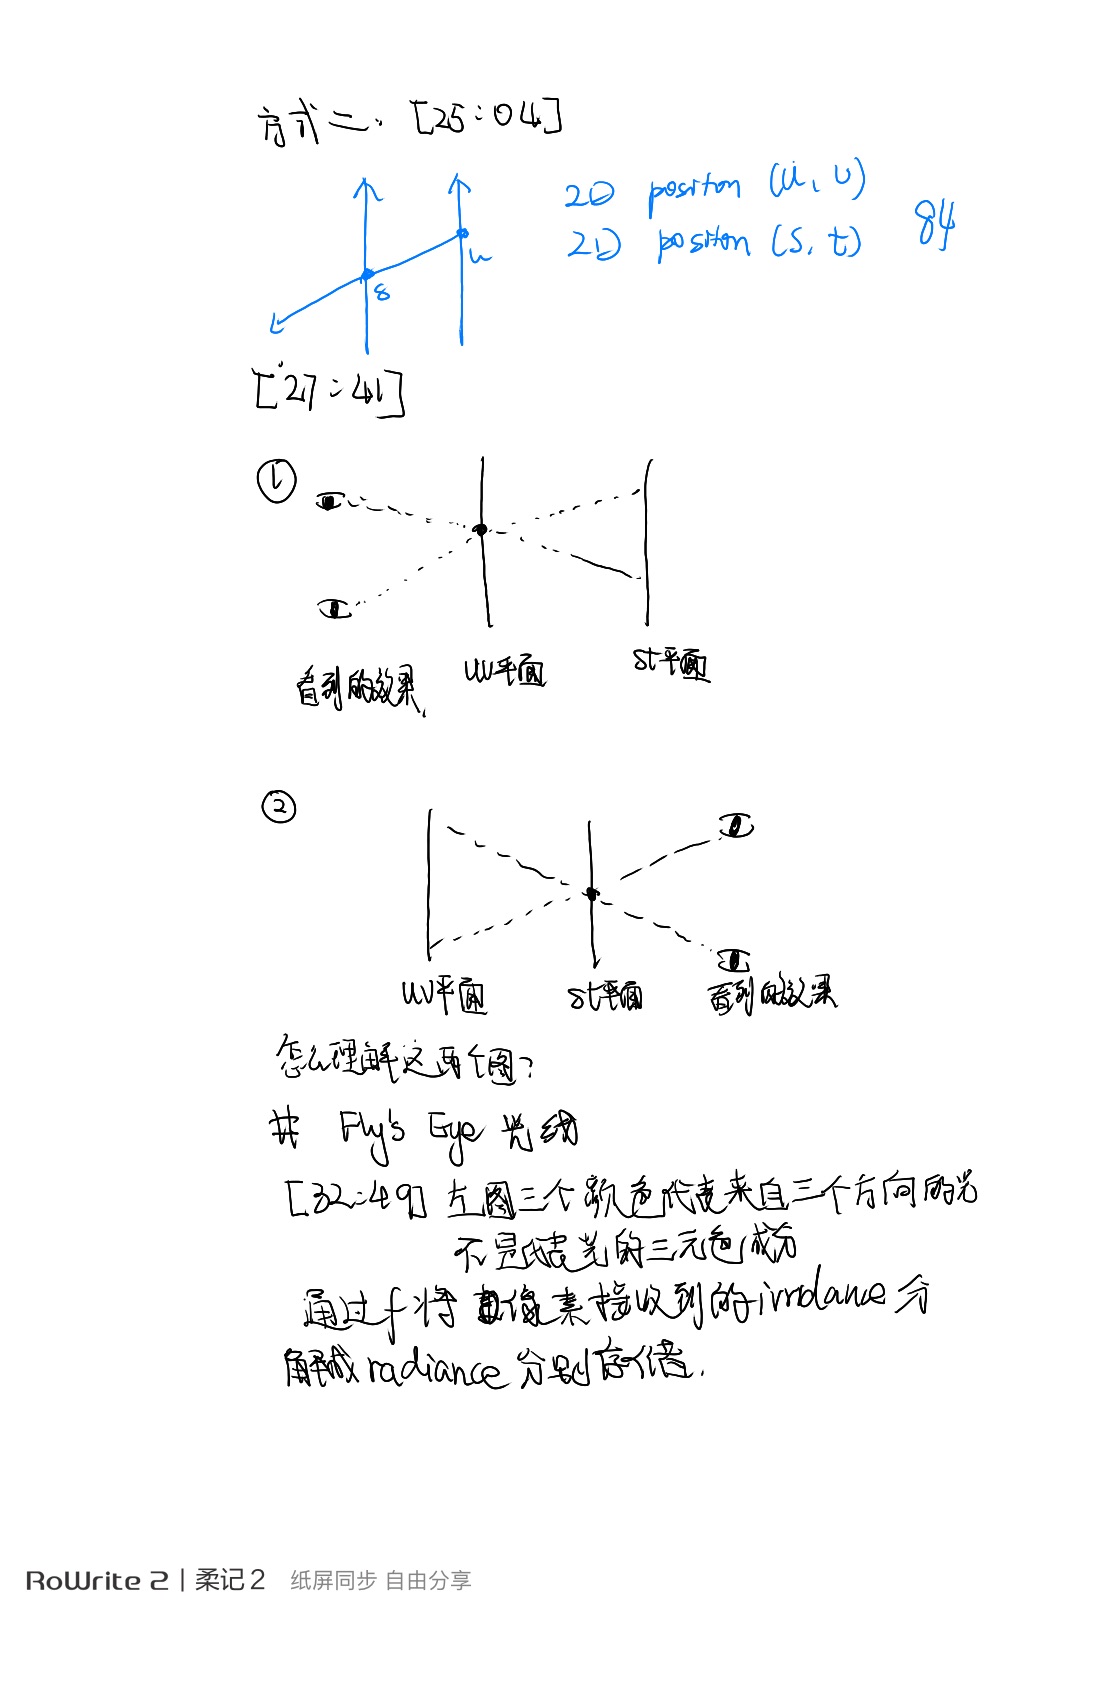 方式二. [25:04]
2D positon (u, v)
2D positon (s, t)
84
u
s
[27:41]
①
UV平面
st平面
看到的效果.
②
UV平面
st平面
看到的效果
怎么理解这两个图?
# Fly's Eye 光线
[32:49] 左图三个颜色代表来自三个方向的光
不是代表光的三元色成分
通过f将 像素接收到的irrdance分
解成radiance分别存储.
RoWrite 2 | 柔记 2 纸屏同步 自由分享